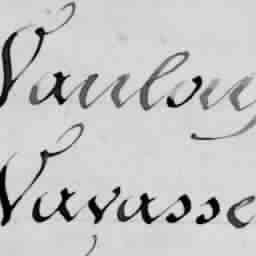 Vanlouy
Vavasse